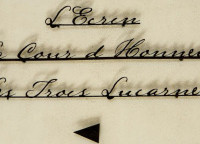 L'Ecrin
Cour d'Honneu
Trois Lucarne